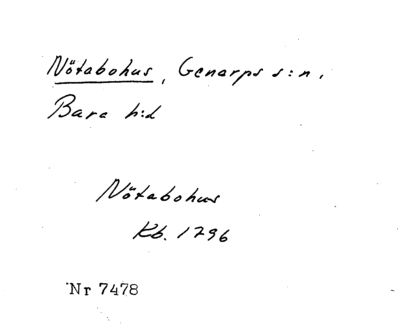 Nötabohus, Genarps s:n,
Bara h:d
Nötabohus
Kb. 1796
Nr 7478